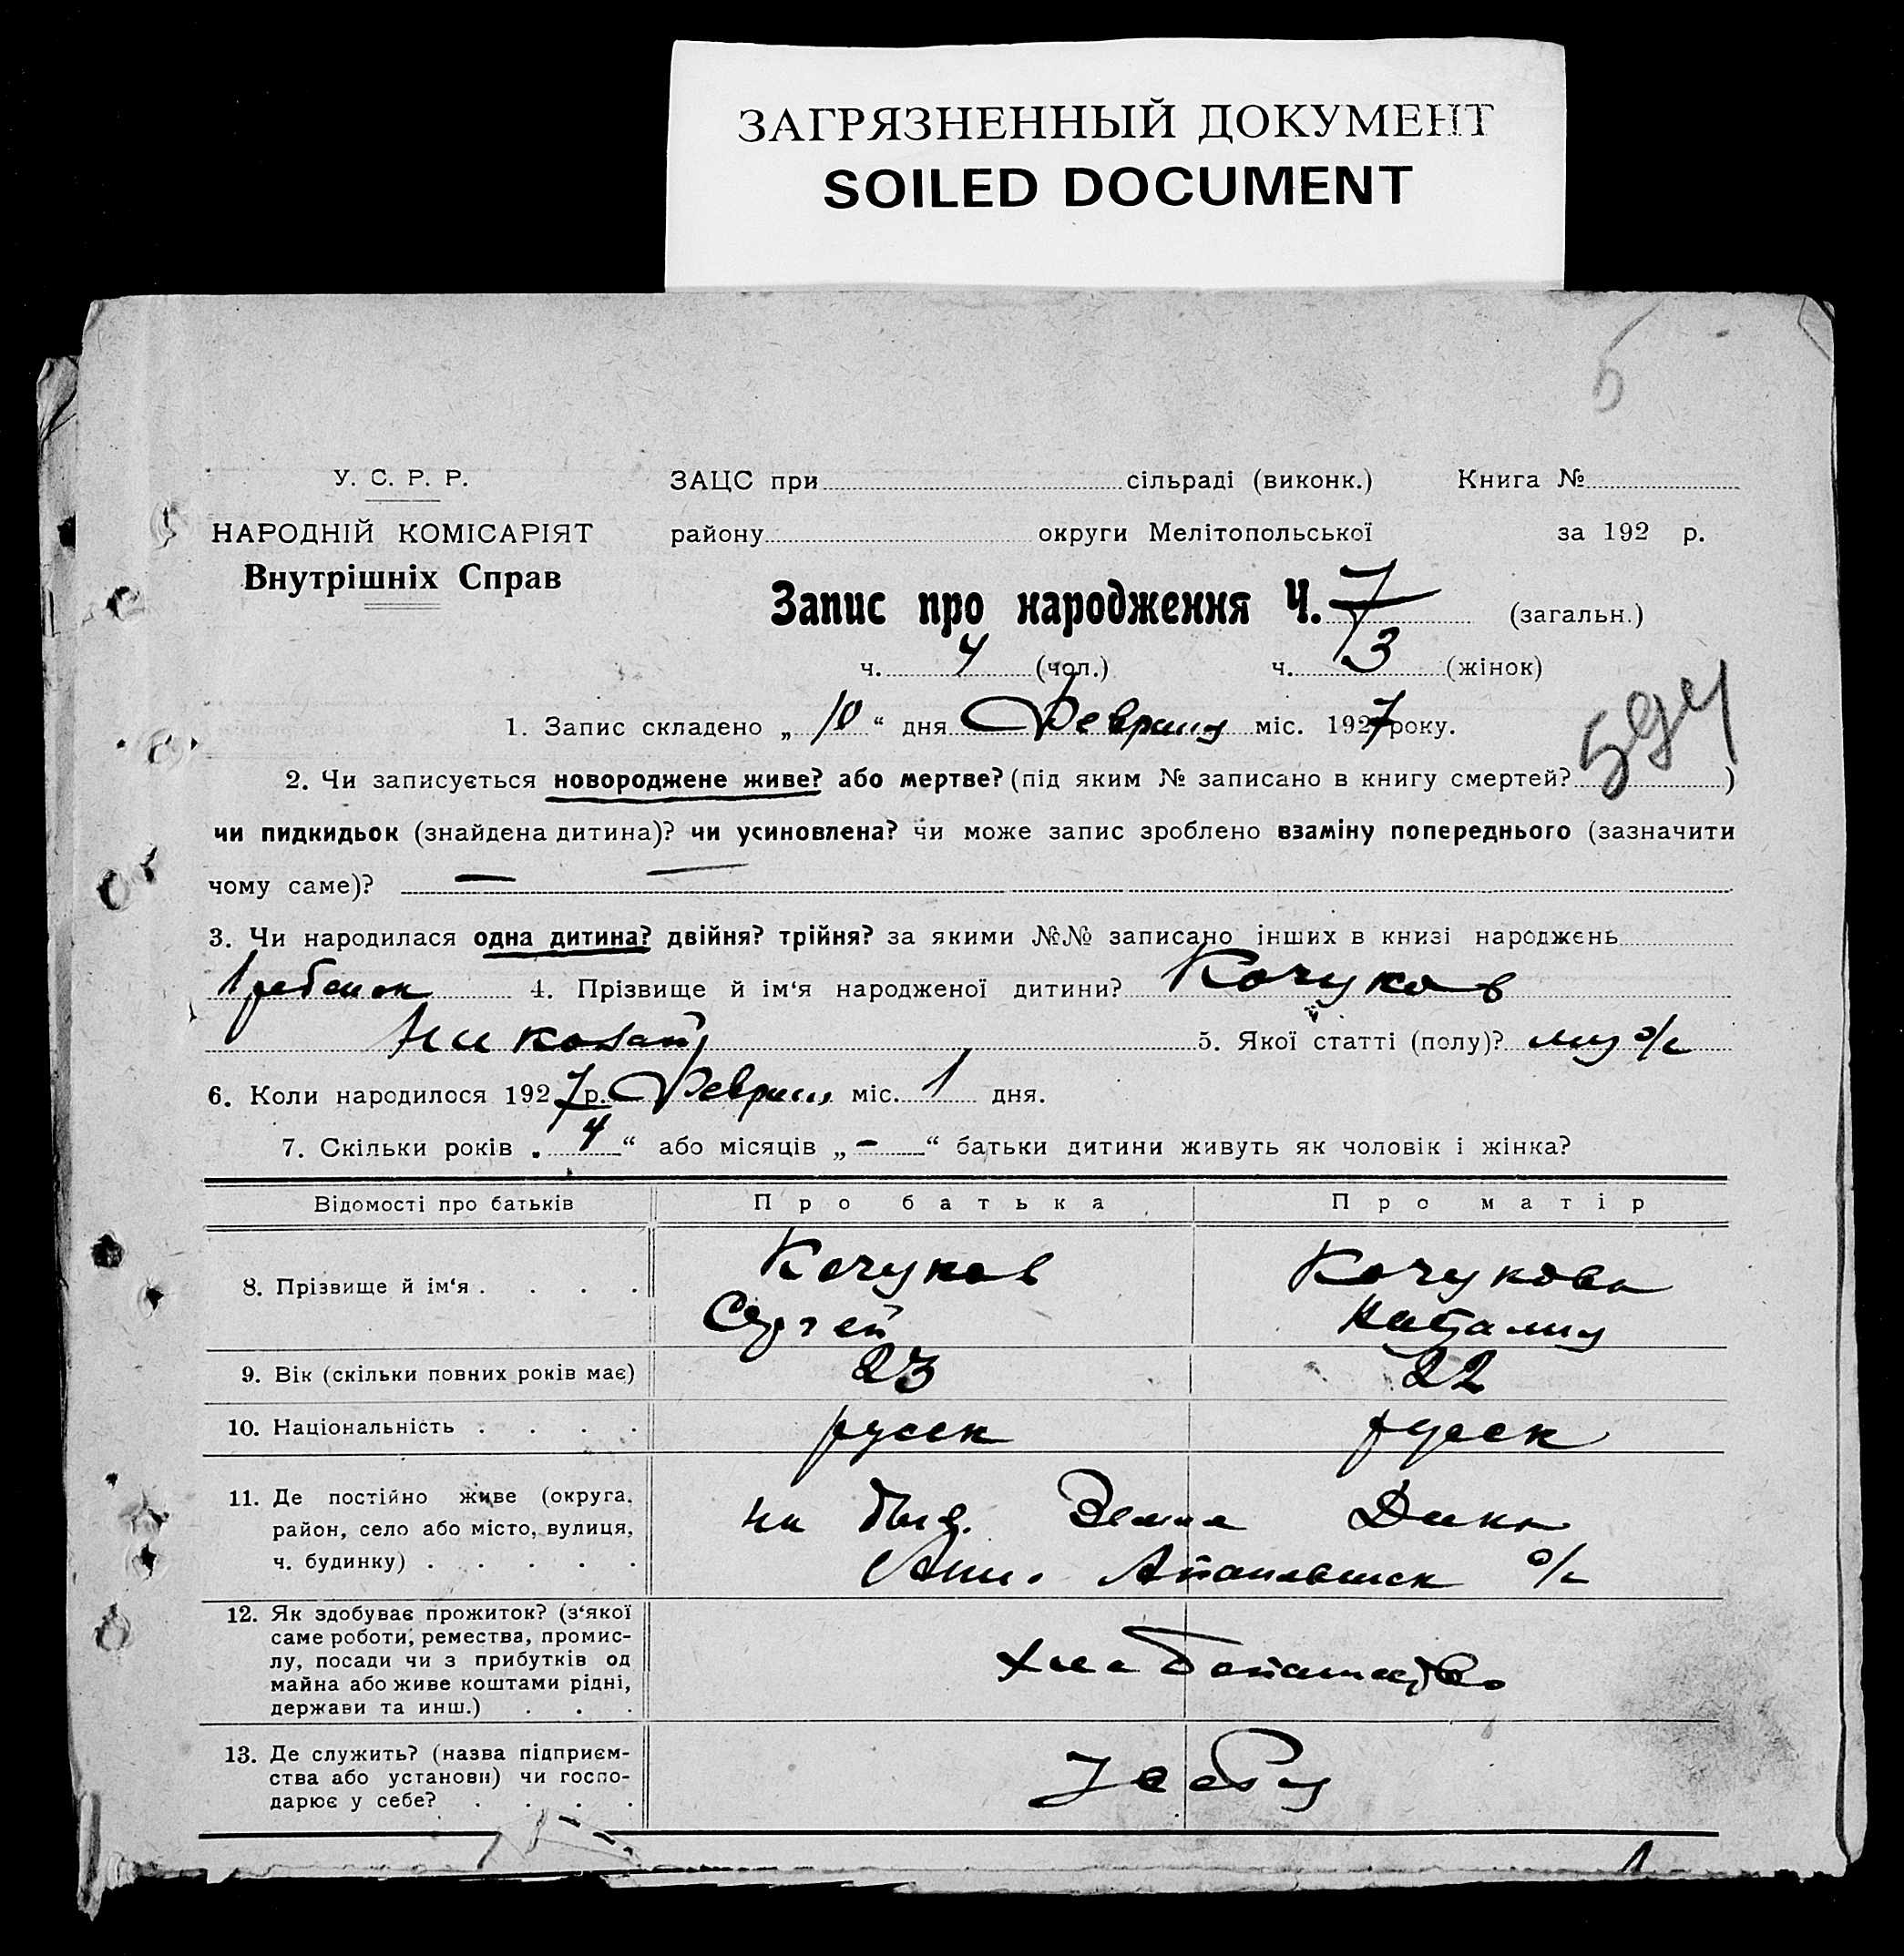 ЗАГРЯЗНЕННЫЙ ДОКУМЕНТ
SOILED DOCUMENT
У. С. Р. Р.
НАРОДНІЙ КОМІСАРІЯТ
Внутрішніх Справ
ЗАЦС при сільраді (виконк.) Книга №
району округи Мелітопольської за 192 р.
Запис про народження Ч. 7 (загальн.)
ч. 4 (чол.) ч. 3 (жінок)
1. Запис складено „ 10 “ дня Февраля міс. 1927 року.
594
2. Чи записується новороджене живе? або мертве? (під яким № записано в книгу смертей? )
чи пидкидьок (знайдена дитина)? чи усиновлена? чи може запис зроблено взаміну попереднього (зазначити
чому саме)? — —
3. Чи народилася одна дитина? двійня? трійня? за якими №№ записано інших в книзі народжень
1 ребенок 4. Прізвище й ім‘я народженої дитини? Кочуков
Николай 5. Якої статті (полу)? муж
6. Коли народилося 1927 р. Февраля міс. 1 дня.
7. Скільки років „ 4 “ або місяців „ — “ батьки дитини живуть як чоловік і жінка?
Відомості про батьків Про батька Про матір
8. Прізвище й ім‘я . . . . Кочуков Сергей Кочукова Наталия
9. Вік (скільки повних років має) 23 22
10. Національність . . . . русск русск
11. Де постійно живе (округа,
район, село або місто, вулиця,
ч. будинку) . . . . .
на быв. Земле
12. Як здобуває прожиток? (з‘якої
саме роботи, ремества, промис-
лу, посади чи з прибутків од
майна або живе коштами рідні,
держави та инш.) . . .
хлебопашество
13. Де служить? (назва підприєм-
ства або установи) чи госпо-
дарює у себе? . . . .
У себя